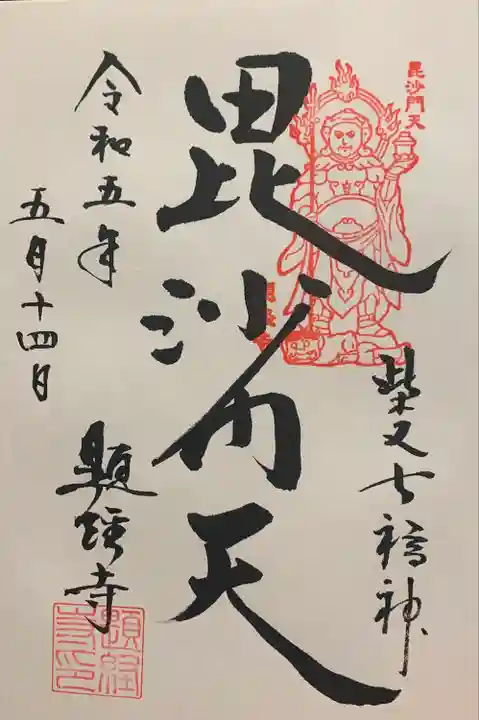 毘沙門天
柴又七福神
毘沙門天
令和五年
五月十四日
題經寺
題経
寺印